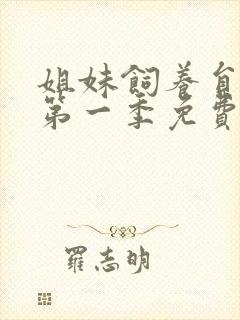 姐妹飼養自
第一季免費
羅志明